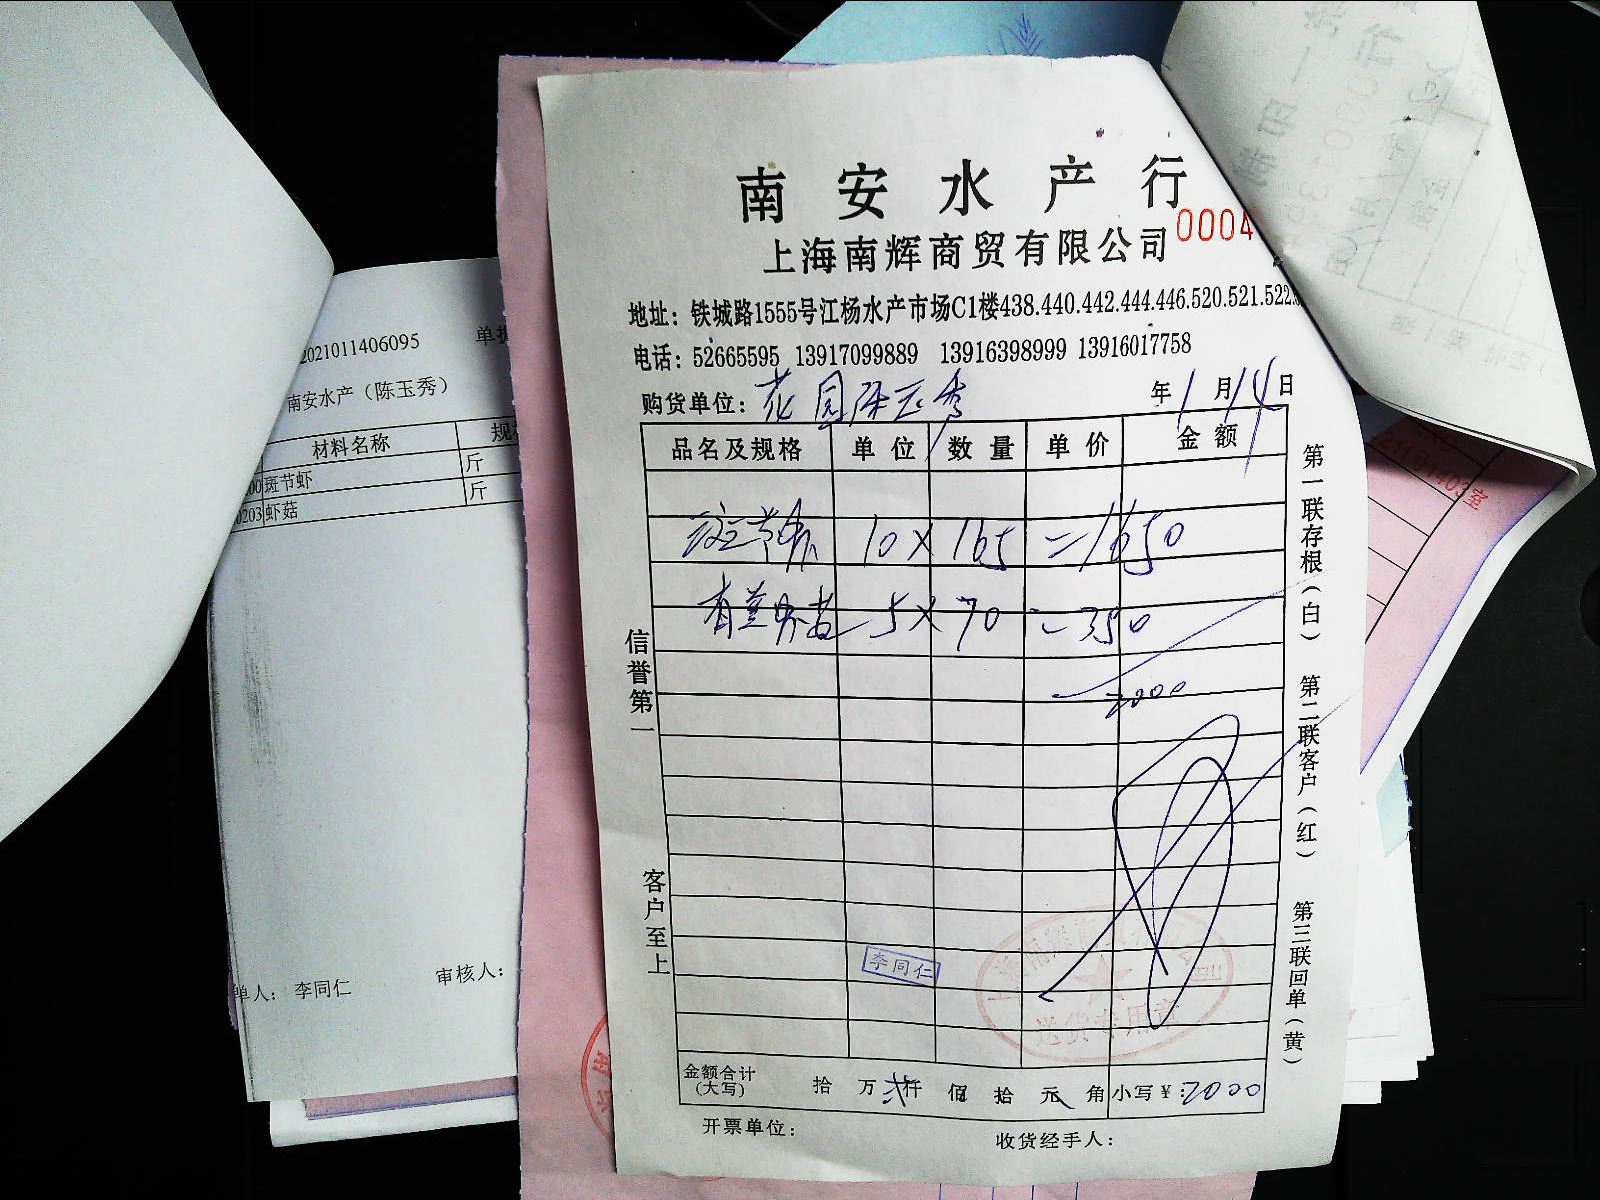 南安水产行
上海南辉商贸有限公司 0004
地址：铁城路1555号江杨水产市场C1楼438.440.442.444.446.520.521.522.
电话：52665595 13917099889 13916398999 13916017758
购货单位：花园陈玉秀 年1月14日
品名及规格 单位 数量 单价 金额
斑节虾 10×165=1650
5×70=350
2000
信誉第一
客户至上
第一联存根（白） 第二联客户（红） 第三联回单（黄）
李同仁
送货专用章
金额合计（大写） 拾 万 贰仟 佰 拾 元 角 小写¥：2000
开票单位： 收货经手人：
2021011406095 单据
南安水产（陈玉秀）
材料名称 规格
00 斑节虾 斤
0203 虾菇 斤
单人：李同仁 审核人：
211号1403室